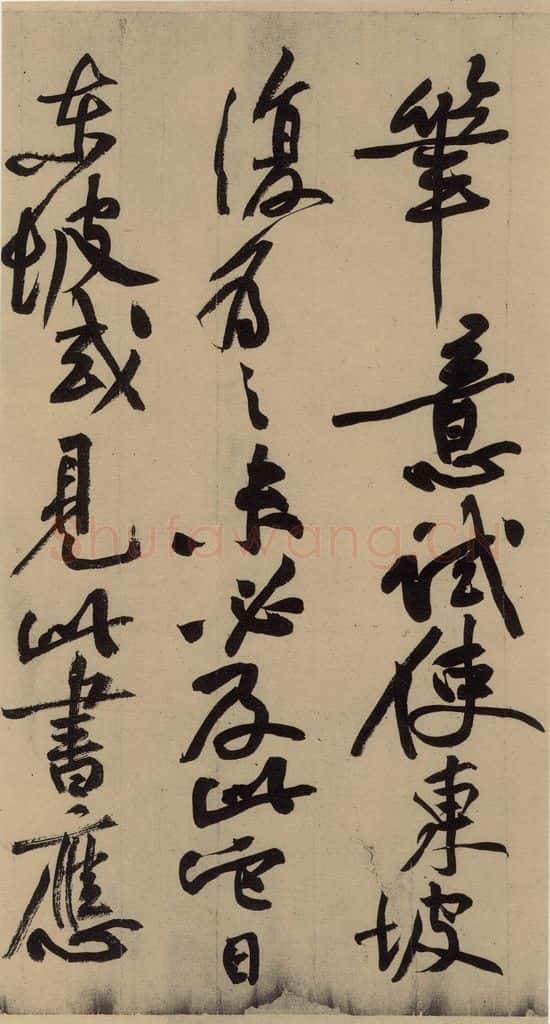 筆意試使東坡
復為之未必及此它日
東坡或見此書應
Shufawang.CN